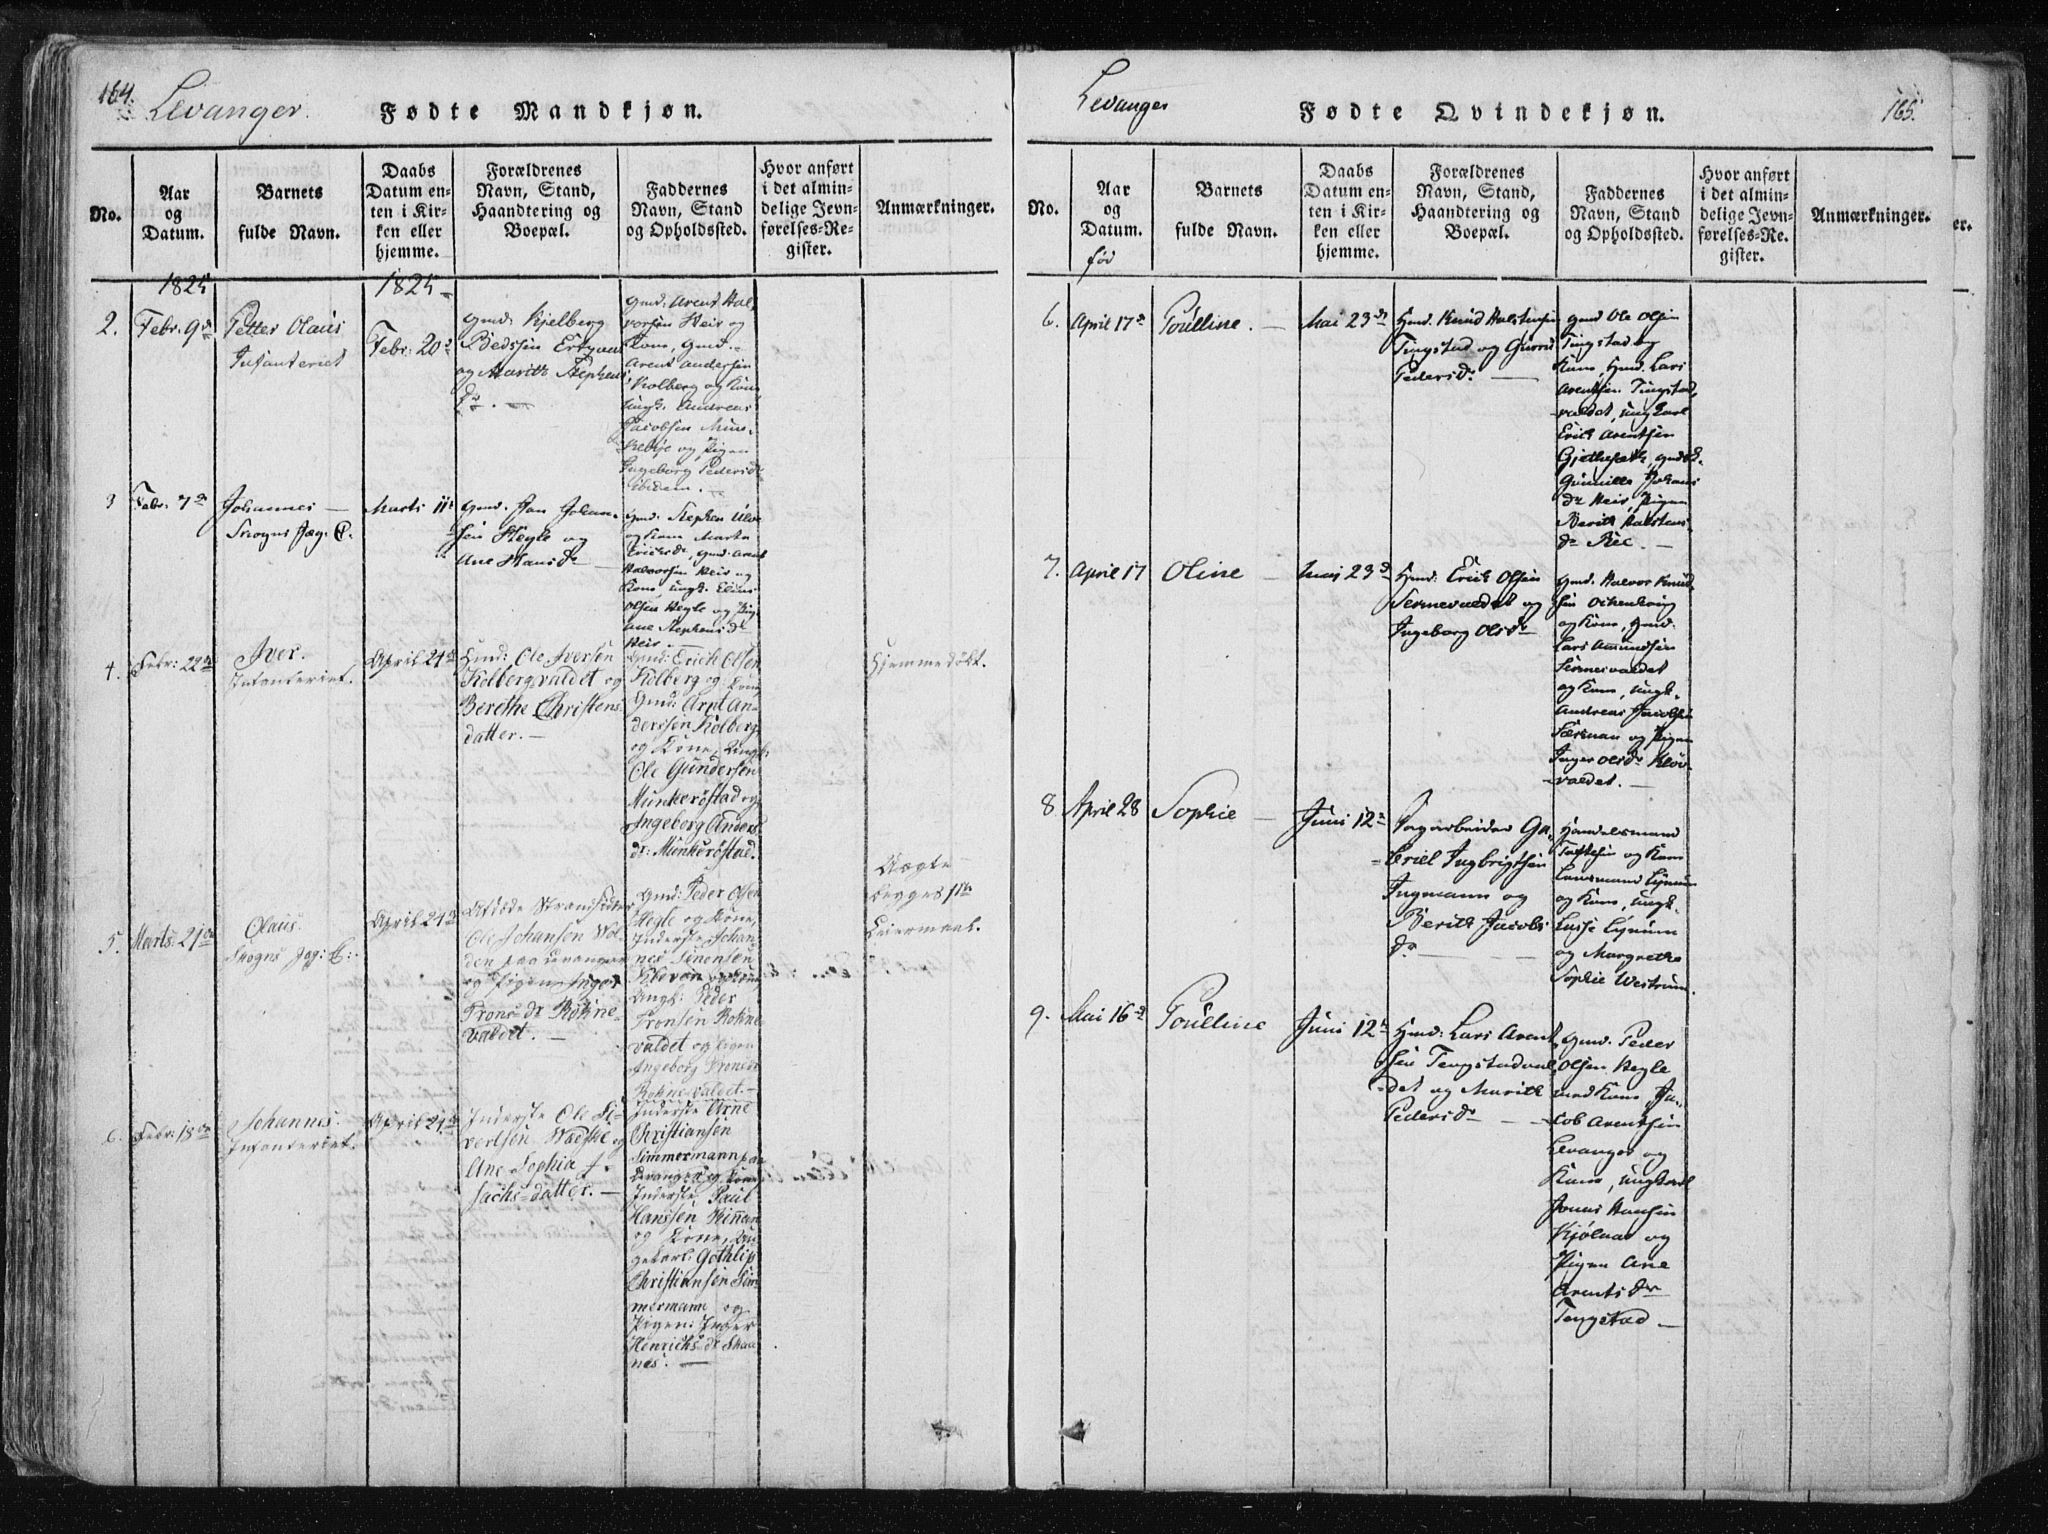 164.
Levanger.
Fødte Mandkjøn.
No.
Aar
og
Datum.
Barnets
fulde Navn.
Daabs
Datum en-
ten i Kir-
ken eller
hjemme.
Forældrenes
Navn, Stand,
Haandtering og
Boepæl.
Faddernes
Navn, Stand
og Opholdssted.
Hvor anført
i det almin-
delige Jevn-
førelses-Re-
gister.
Anmærkninger.
1825
1825
2.
Febr: 9de
Petter Olaus
Infanteriet
Febr: 20
Gmd: Kjelberg
og Marith Stephens
dr. —
Gmd: Arent Hal-
vorsen Heir og
Kone, Gmd.
Arent Andersen
Kolberg og Kone
Ungk. Andreas
Jacobsen Mun-
og Pigen
Ingeborg Pedersdr
ibidem.
3
Febr: 7de
Johannes —
Skogns Jæg. C.
Marts 11
Gmd. Jon Johan-
sen Hegle og
Ane Hansdr
Gmd. Stephen
og Kone Marta
Ericksdr, Gmd. Arent
Halvorsen Heir og
Kone, Ungk.
Olsen Hegle og Pig
Ane Stephensdr
Heir.
4.
Febr: 22de
Iver.
Infanteriet.
April 24de
Huusmd: Ole Iversen
Kolbergsvaldet og
Berethe Christens-
datter. —
Gmd: Erich Olsen
Kolberg og Kone,
Gmd: Arnt An-
derssen Kolberg
og Kone, Ungk:
Ole Gundersen
Munkerøstad og
Ingeborg Anders
dr: Munkerøstad.
Hjemmedøbt.
5.
Marts: 21de
Olaus.
Skogns Jæg: C:
April 24de
Afdøde Strandsidder
Ole Johansen Wol-
den paa Levanger
og Pigen Inger
Trons-dr Rokne-
valdet. —
Gmd: Peder Olsen
Hegle og Kone,
Inderste Johan-
nes Simonsen
Kleven og Kone
Ungk: Peder
Tronsen Rokne
valdet og Pigen
Ingeborg Tronsdr
Roknevaldet. —
Uægte
begges 1ste
Leiermaal.
6.
Febr: 18de
Johannes.
Infanteriet.
April 24de
Inderste Ole Si-
vertsen Wadske og
Ane Sophia I-
sachs-datter. —
Inderste Arne
Christiansen
Simmermann paa
Levanger og Kone
Inderste Paul
Hanssen Rinnan
og Kone, Un-
gekarl: Gothlip
Christiansen Sim-
mermann og
Pigen: Inger
Henrichs-dr Skaa-
nes. —
Levanger
Fødte Qvindekjøn.
165.
No.
Aar
og
Datum.
fød
Barnets
fulde Navn.
Daabs
Datum en-
ten i Kir-
ken eller
hjemme.
Forældrenes
Navn, Stand,
Haandtering og
Boepæl.
Faddernes
Navn, Stand
og Opholdssted.
Hvor anført
i det almin-
delige Jevn-
førelses-Re-
gister.
Anmærkninger.
6.
April 17de
Poülline. —
Mai 23de
Hmd. Knud Halstensen
Tingstad og Gurru
Pedersdr. —
Gmd Ole Olsen
Tingstad og
Kone, Hmd. Lars
Arentsen Tingstad-
valdet, Ungkarl
Erich Arentsen
Gunnille Johans
dr Heir, Pigen
Berith Halstens-
dr Ree. —
7.
April 17
Oline —
Maj 23de
Hmd: Erich Olsen
Sermevaldet og
Ingeborg Olsdr
Gmd. Halvor Knud-
sen
og Kone, Gmd.
Lars Amundsen
Sermesvaldet
og Kone, Ungk.
Andreas Jacobsen
og Pigen
Inger Olsdr
valdet. —
8
April 28
Sophie —
Juni 12te
Dagarbeider Ga-
briel Ingbrigtsen
Ingmann og
Berith Jacobs
dr —
Handelsmand
Toftesen og Kone
Lensmand Lynum
og Kone, Ungk.
Lynum
og Margrethe
Sophie Westrum.
9.
Mai 16de
Poülline
Juni 12te
Hmd: Lars Arent
sen Tengstadval
det og Marith
Pedersdr — —
Gmd. Peder
Olsen Hegle
med Kone, Ja-
cob Arentsen
Levanger og
Kone, Ungkarl
Jonas Hansen
og
Pigen Ane
Arentsdr
Tengstad —